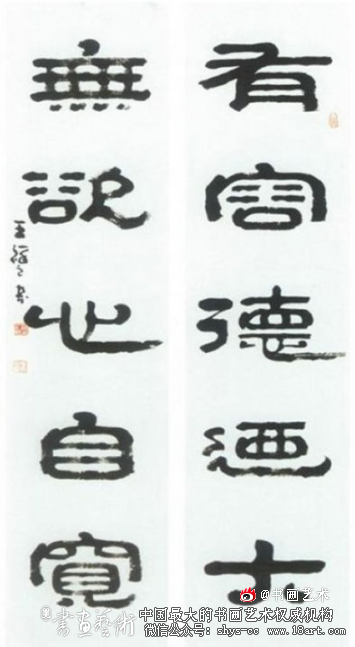 有容德迺大
無欲心自寬
@书画艺术
書畫藝術
中国最大的书画艺术权威机构
微信公众号：shys-cc www.18art.com